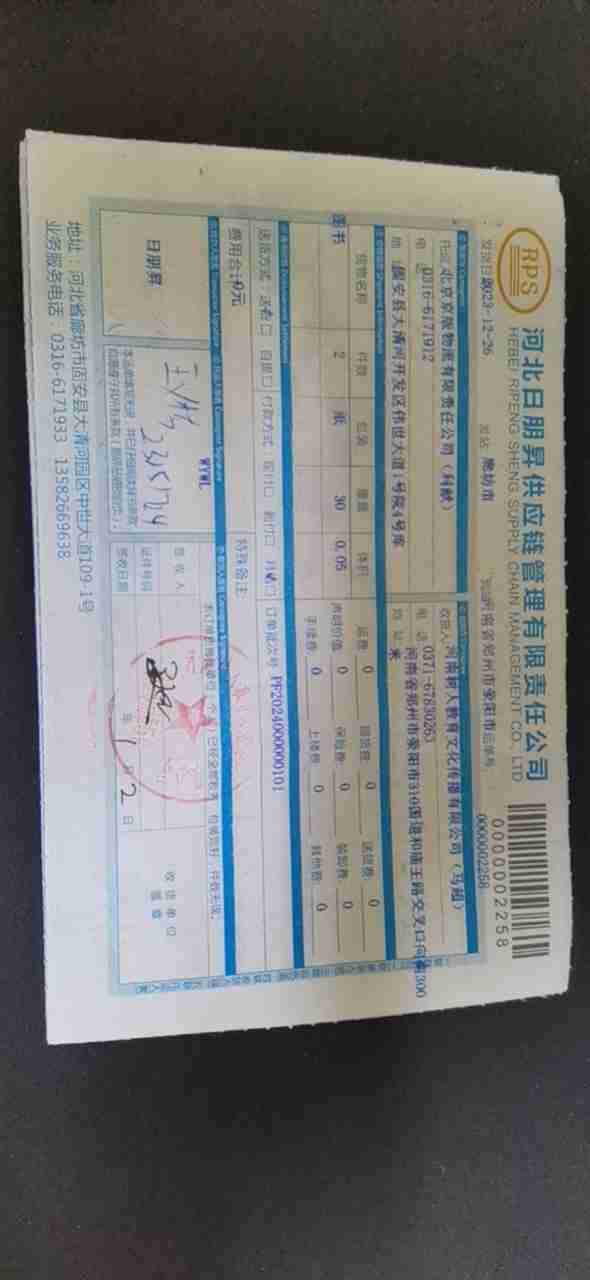 RPS
河北日朋昇供应链管理有限责任公司
HEBEI RIPENG SHENG SUPPLY CHAIN MANAGEMENT CO., LTD
0000002258
发送日期 2023-12-26
发站 廊坊市
河南省郑州市荥阳市 运单号 0000002258
北京京版物流有限责任公司（科教）
收货人 河南耕人教育文化传播有限公司（马超）
电话 0316-6171912
电话 0371-67830263
固安县大清河开发区伟世大道1号院4号库
河南省郑州市荥阳市310国道和庙王路交叉口向南300
米
货物名称 件数 包装 重量 体积
运费: 0 回货费: 0 送货费: 0
图书 2 纸 30 0.05
声明价值: 0 保险费: 0 装卸费: 0
手续费: 0 上楼费: 0 其他费: 0
送货方式: 送货 自提 付款方式: 现付 到付 月结
订单批次号 PF2024000000101
费用合计0元
特殊备注:
日朋昇
WYWL
签收人
证件号码
签收日期 年 1 月 2 日
收货单位
盖章
地址：河北省廊坊市固安县大清河园区中世大道109-1号
业务服务电话：0316-6171933 13582669638